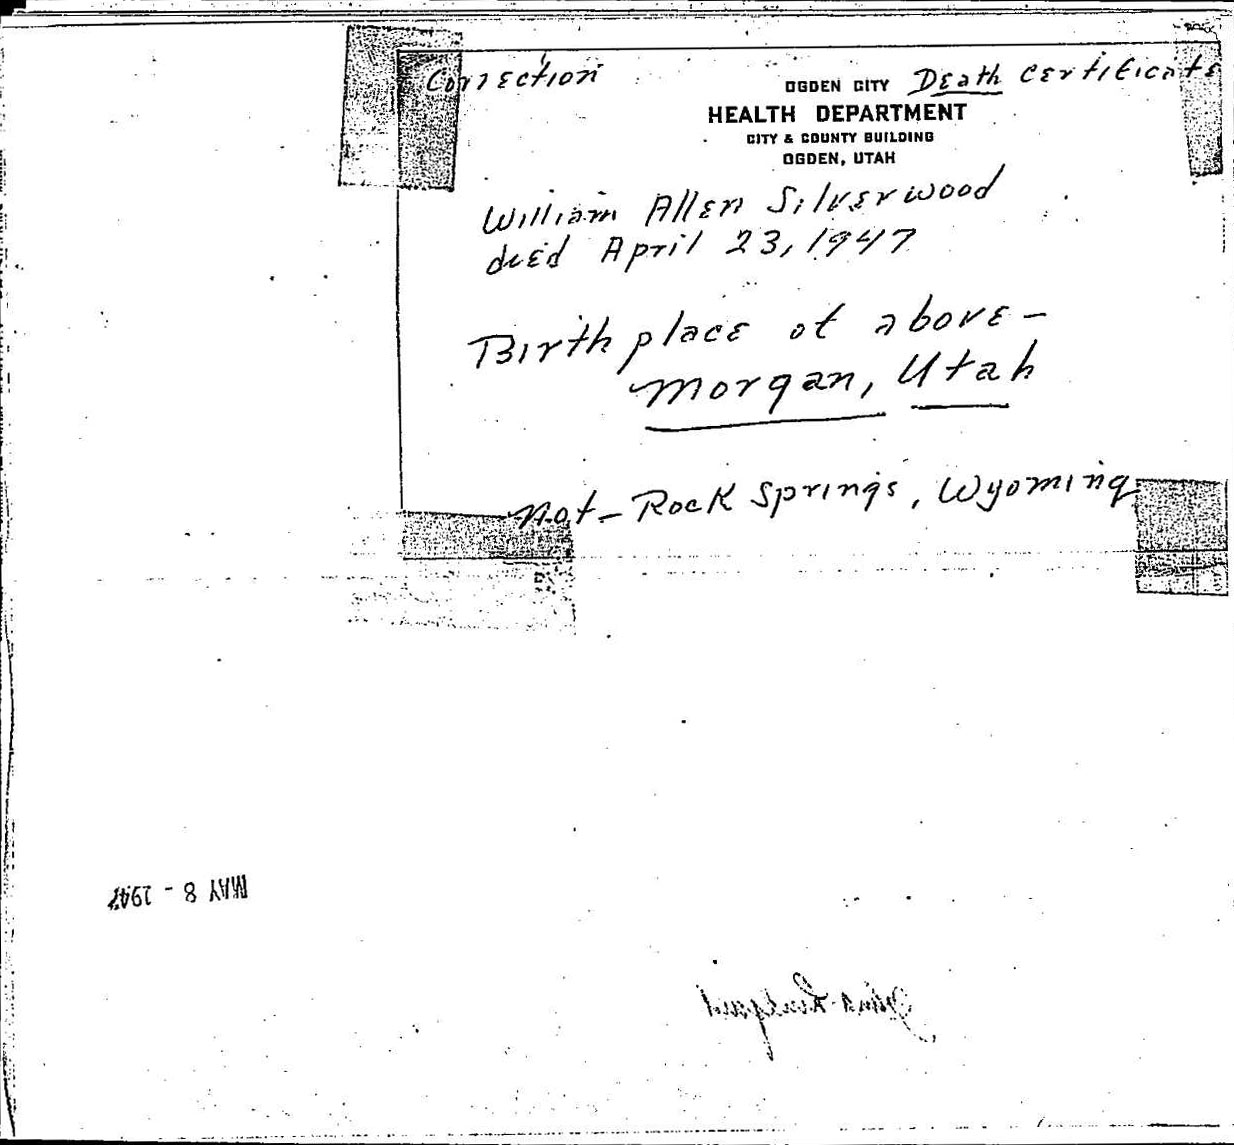 Correction
OGDEN CITY Death Certificate
HEALTH DEPARTMENT
CITY & COUNTY BUILDING
OGDEN, UTAH
William Allen Silverwood
died April 23, 1947
Birth place of above-
Morgan, Utah
not- Rock Springs, Wyoming
MAY 8 - 1947